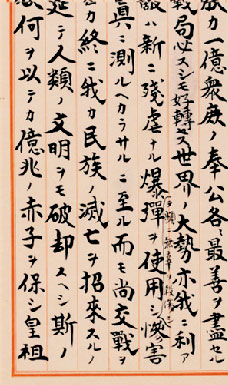 朕カ一億衆庶ノ奉公各最善ヲ盡セル
戰局必スシモ好轉セス世界ノ大勢亦我ニ利ア
敵ハ新ニ殘虐ナル爆彈ヲ使用シテ頻ニ無辜ヲ殺傷シ慘害
眞ニ測ルヘカラサルニ至ル而モ尚交戰ヲ
カ終ニ我カ民族ノ滅亡ヲ招來スルノ
延テ人類ノ文明ヲモ破却スヘシ斯ノ
朕何ヲ以テカ億兆ノ赤子ヲ保シ皇祖